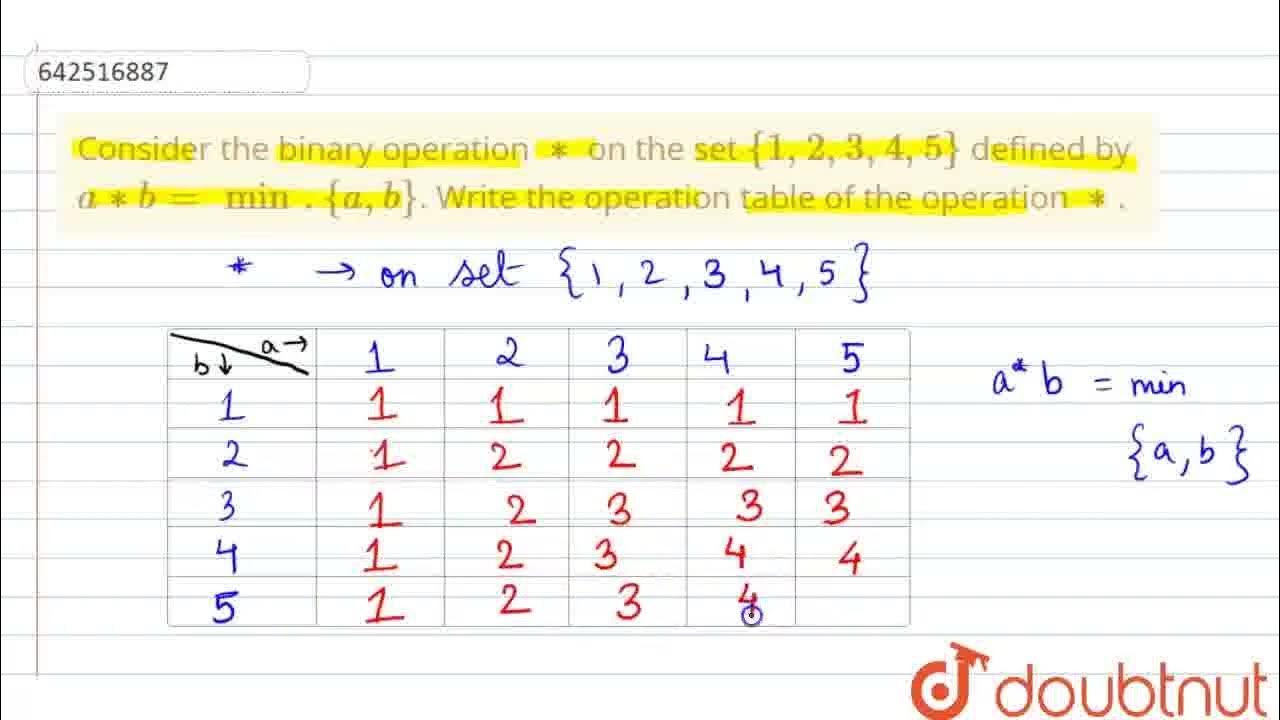 642516887
Consider the binary operation * on the set {1, 2, 3, 4, 5} defined by
a * b = min . {a, b}. Write the operation table of the operation * .
* → on set {1, 2, 3, 4, 5}
a→ 1 2 3 4 5
b↓
1 1 1 1 1 1
2 1 2 2 2 2
3 1 2 3 3 3
4 1 2 3 4 4
5 1 2 3 4
a * b = min
{a, b}
doubtnut